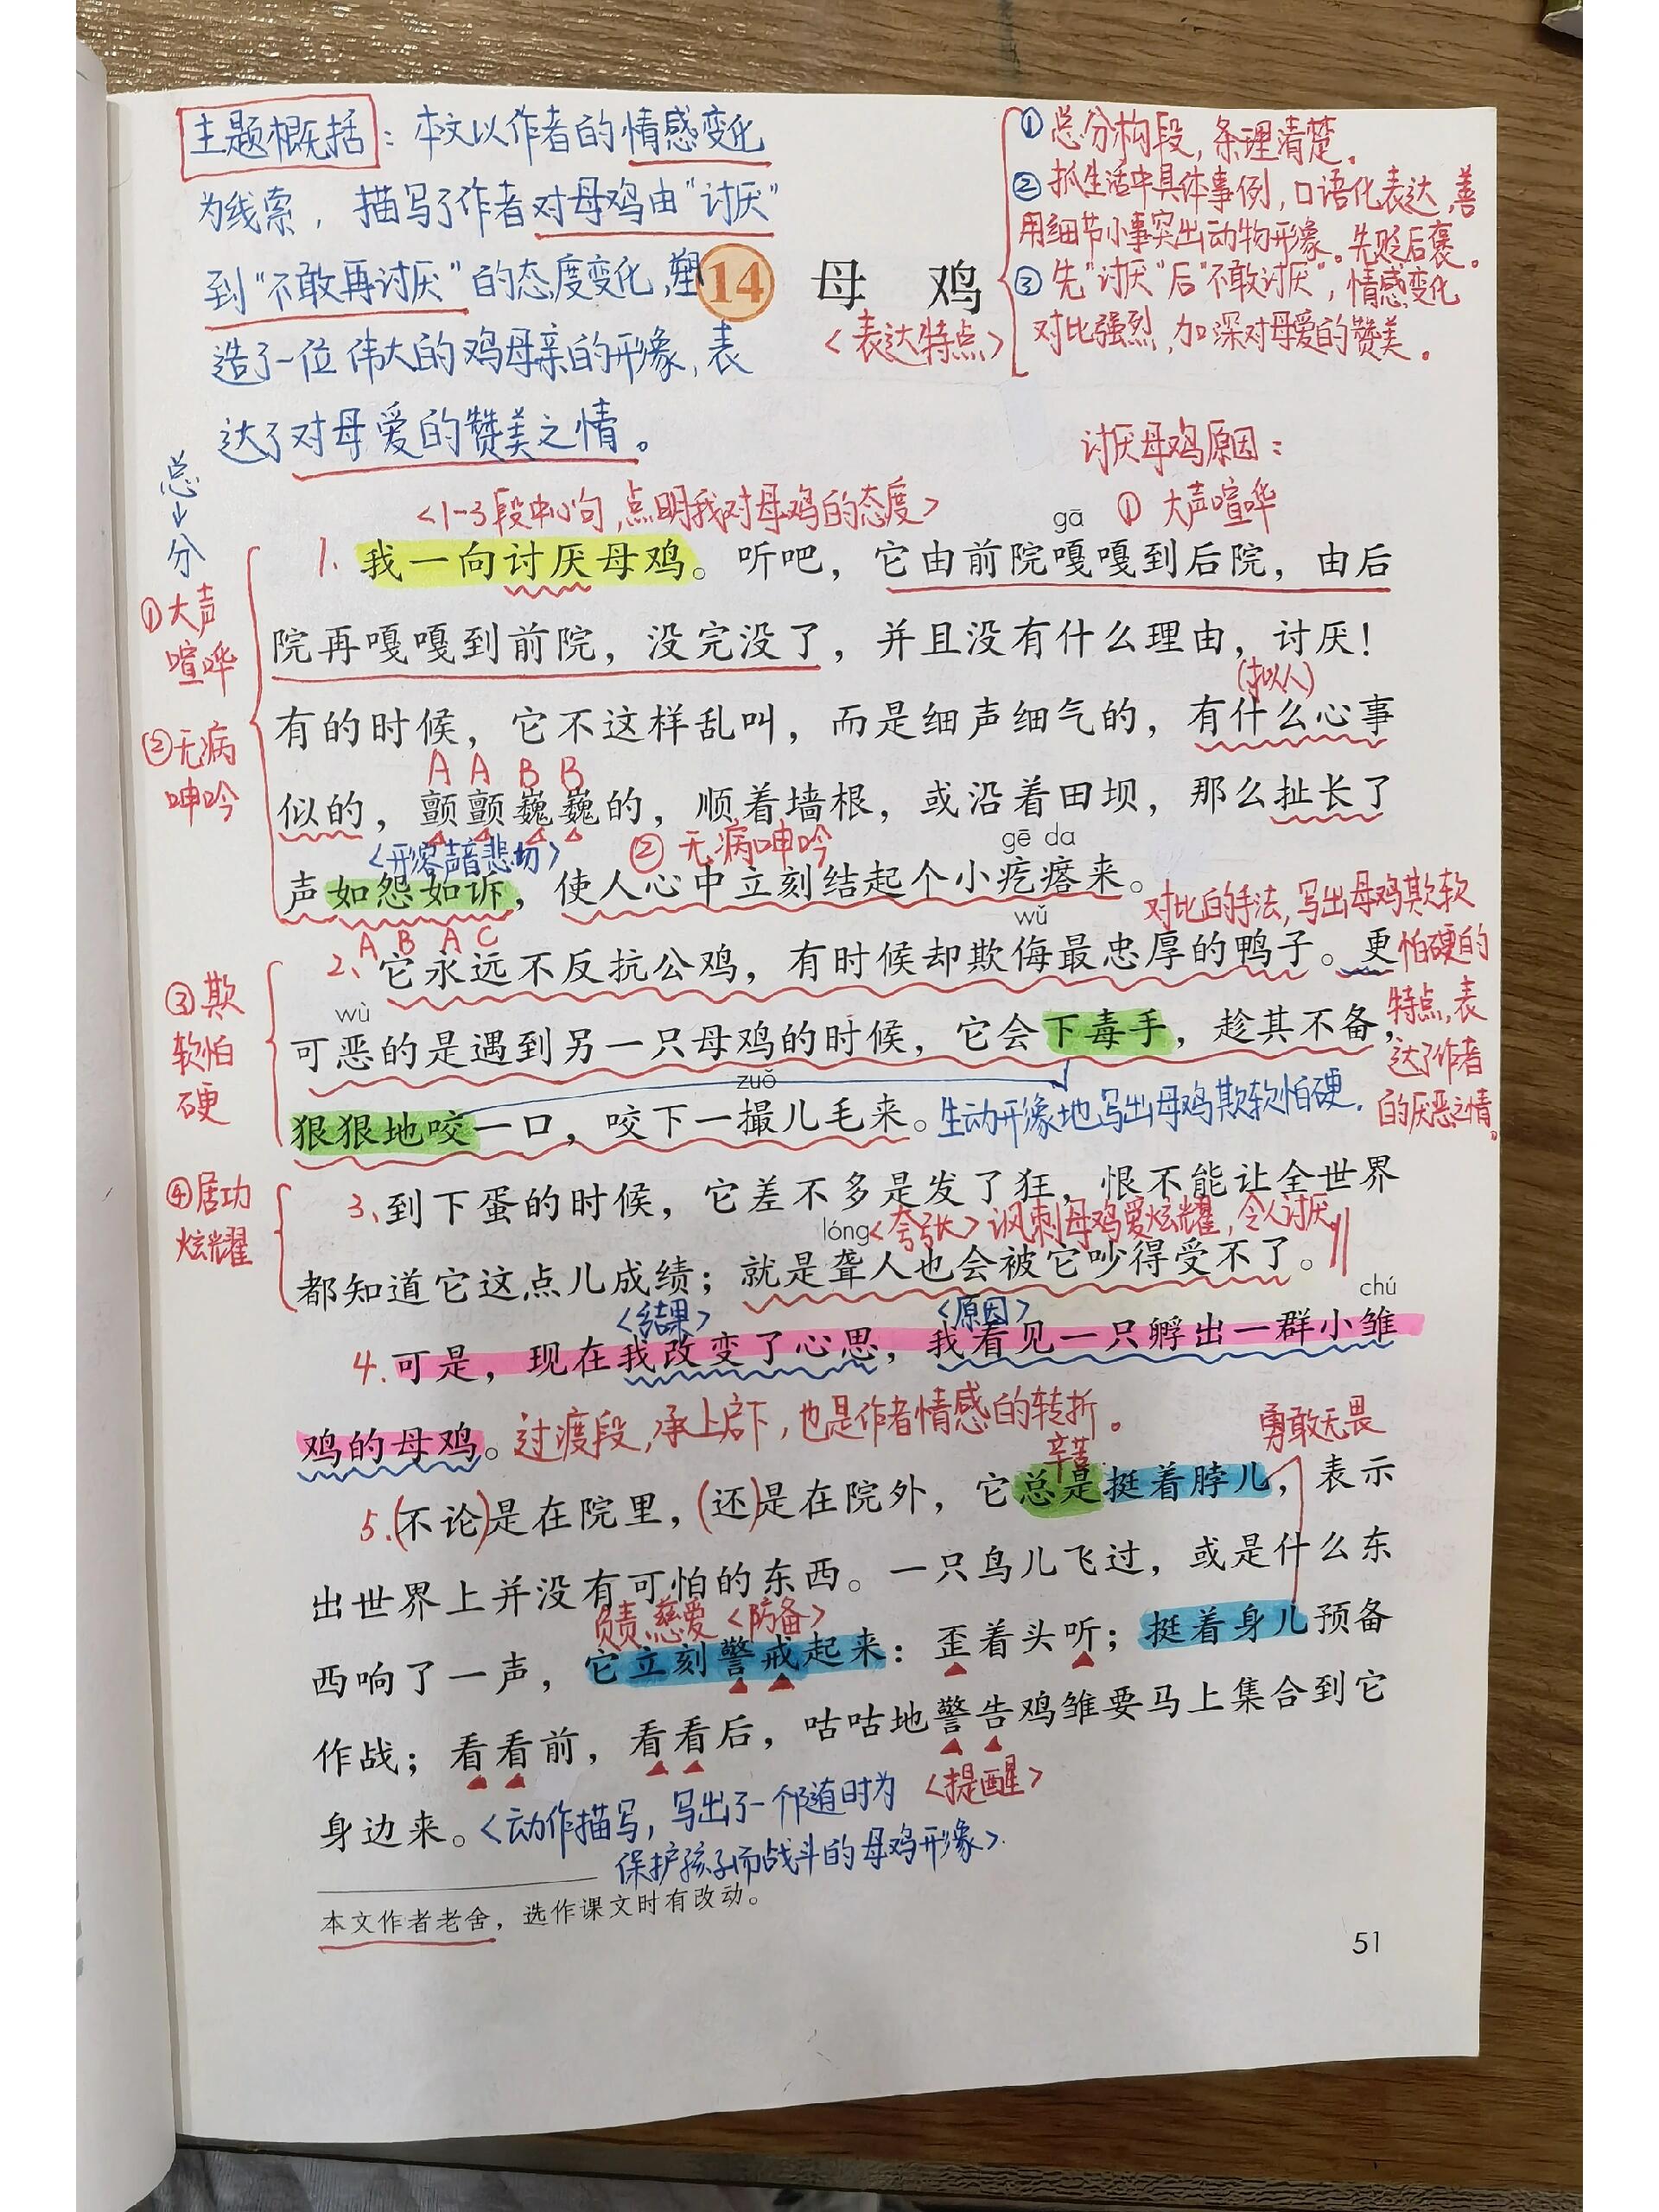 主题概括：本文以作者的情感变化
为线索，描写了作者对母鸡由“讨厌”
到“不敢再讨厌”的态度变化，塑
造了一位伟大的鸡母亲的形象，表
达了对母爱的赞美之情。
14 母 鸡
<表达特点>
①总分构段，条理清楚。
②抓生活中具体事例，口语化表达，善
用细节小事突出动物形象。先贬后褒。
③先“讨厌”后“不敢讨厌”，情感变化
对比强烈，加深对母爱的赞美。
讨厌母鸡原因：
①大声喧哗
总
↓
分
<1-3段中心句，点明我对母鸡的态度>
gā
1.我一向讨厌母鸡。听吧，它由前院嘎嘎到后院，由后
①大声
喧哗
院再嘎嘎到前院，没完没了，并且没有什么理由，讨厌！
(拟人)
有的时候，它不这样乱叫，而是细声细气的，有什么心事
②无病
呻吟
A A B B
似的，颤颤巍巍的，顺着墙根，或沿着田坝，那么扯长了
<形容声音悲切>
②无病呻吟
gē da
声如怨如诉，使人心中立刻结起个小疙瘩来。
A B A C
wǔ
对比的手法，写出母鸡欺软
怕硬的
特点，表
达了作者
的厌恶之情。
2、它永远不反抗公鸡，有时候却欺侮最忠厚的鸭子。更
③欺
软怕
硬
wù
可恶的是遇到另一只母鸡的时候，它会下毒手，趁其不备，
zuǒ
狠狠地咬一口，咬下一撮儿毛来。
生动形象地写出母鸡欺软怕硬.
④居功
炫耀
3、到下蛋的时候，它差不多是发了狂，恨不能让全世界
lóng
<夸张>讽刺母鸡爱炫耀，令人讨厌
都知道它这点儿成绩；就是聋人也会被它吵得受不了。
<结果>
<原因>
chú
4.可是，现在我改变了心思，我看见一只孵出一群小雏
鸡的母鸡。
过渡段，承上启下，也是作者情感的转折。
辛苦
勇敢无畏
5.(不论)是在院里，(还)是在院外，它总是挺着脖儿，表示
出世界上并没有可怕的东西。一只鸟儿飞过，或是什么东
负责.慈爱<防备>
西响了一声，它立刻警戒起来：歪着头听；挺着身儿预备
作战；看看前，看看后，咕咕地警告鸡雏要马上集合到它
<提醒>
身边来。
<动作描写，写出了一个随时为
保护孩子而战斗的母鸡形象>.
本文作者老舍，选作课文时有改动。
51